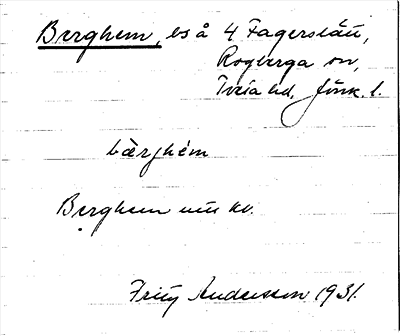 Berghem, bs å 4 Fagerslätt,
Rogberga sn,
Tveta hd, Jönk. l.
bærjhém
Berghem utt. kv.
Fritz Andersson 1931.